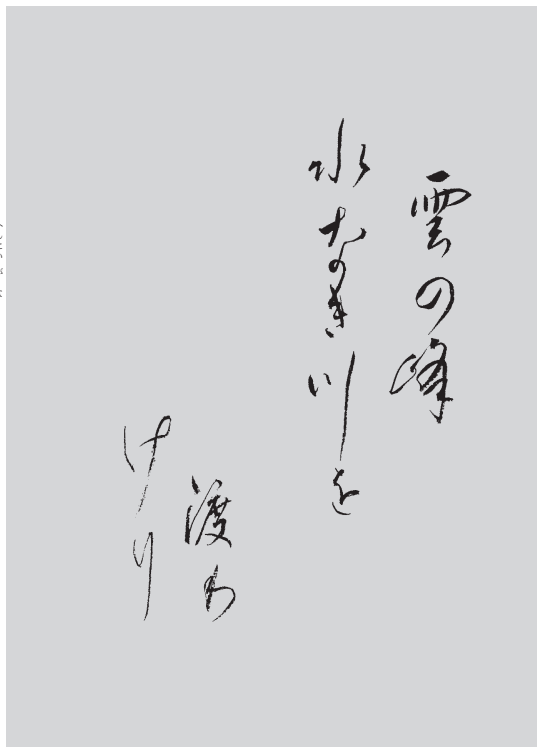 雲の峰
水なき川を
渡り
けり